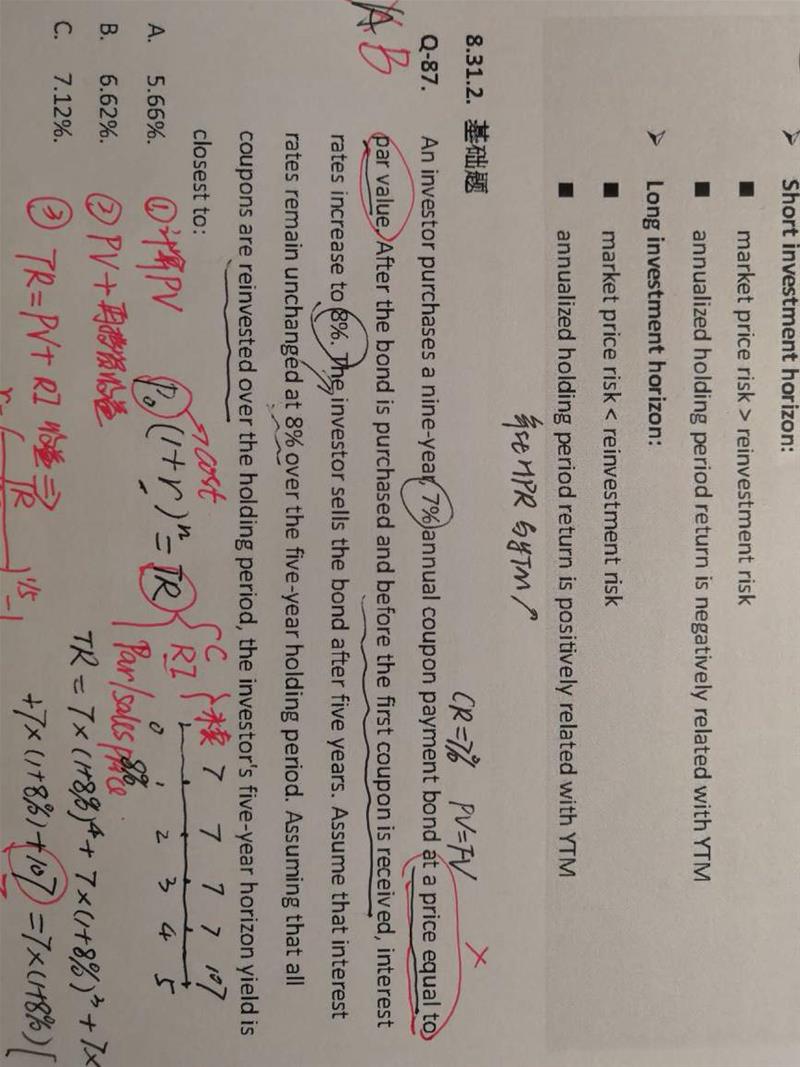 ➢ Short investment horizon:
■ market price risk > reinvestment risk
■ annualized holding period return is negatively related with YTM
➢ Long investment horizon:
■ market price risk < reinvestment risk
■ annualized holding period return is positively related with YTM
HPR 与 YTM ↗
8.31.2. 基础题
CR=7% PV=FV
×
Q-87. An investor purchases a nine-year, 7% annual coupon payment bond at a price equal to
par value. After the bond is purchased and before the first coupon is received, interest
rates increase to 8%. The investor sells the bond after five years. Assume that interest
rates remain unchanged at 8% over the five-year holding period. Assuming that all
coupons are reinvested over the holding period, the investor's five-year horizon yield is
closest to:
A B
A. 5.66%.
B. 6.62%.
C. 7.12%.
①计算PV
②PV+再投资收益
③TR=PV+RI 收益⇒
cost
P₀(1+r)ⁿ=TR
C
RI
Par/sales price
r= TR 1/5 -1
7 7 7 7 107
0 1 2 3 4 5
8%
TR=7×(1+8%)⁴+7×(1+8%)³+7×
+7×(1+8%)+107=7×(1+8%)[